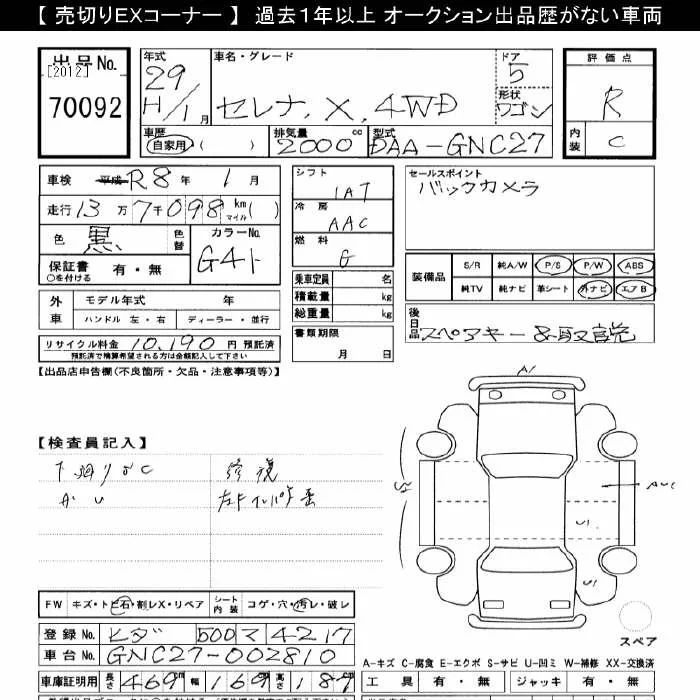 【 売切りEXコーナー 】 過去１年以上 オークション出品歴がない車両
出品No.
[2012]
70092
年式
29年
H/1月
車名・グレード
セレナ, X, 4WD
ドア
5
形状
ワゴン
評価点
R
内装
C
車歴
自家用
排気量
2000 cc
型式
DAA-GNC27
車検 平成 R8年 1月
走行 13万 7千098 km マイル ( )
色 黒 色替 カラーNo. G41
保証書 有・無
○を付ける
外車 モデル年式 年
ハンドル 左・右 ディーラー・並行
リサイクル料金 10,190 円 預託済
預託済で精算希望される方は金額記入して下さい
シフト
IAT
冷房
AAC
燃料
G
乗車定員 名
積載量 kg
総重量 kg
書類期限
月 日
セールスポイント
バックカメラ
装備品
S/R 純A/W P/S P/W ABS
純TV 純ナビ 革シート 外ナビ エアB
後日品
スペアキー &取説
【出品店申告欄(不良箇所・欠品・注意事項等)】
【検査員記入】
下廻りサC
修復
A1
U1
U1
FW キズ・トビ石・割レX・リペア シート内装 コゲ・穴・汚レ・破レ
登録No. 500 マ 4217
車台No. GNC27-002810
車庫証明用 長さ 469 幅 169 高さ 187
スペア
A-キズ C-腐食 E-エクボ S-サビ U-凹ミ W-補修 XX-交換済
工具 有・無 ジャッキ 有・無